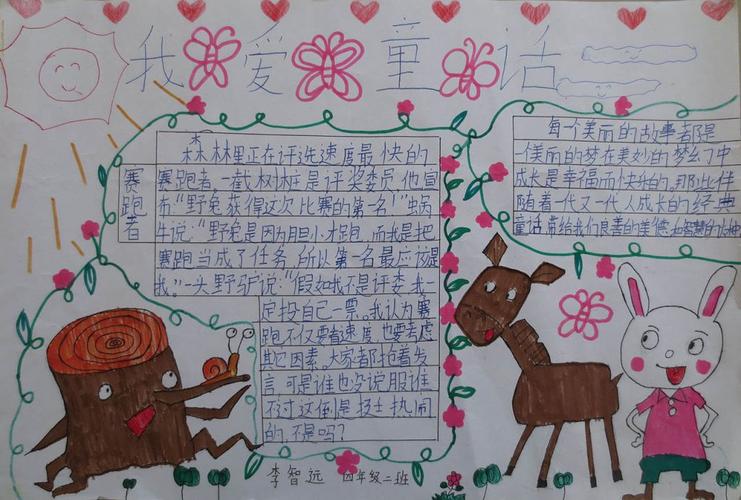 我爱童话
赛跑者
森林里正在评选速度最快的
赛跑者。一截树桩是评奖委员,他宣
布“野兔获得这次比赛的第一名!”蜗
牛说:“野兔是因为胆小才跑,而我是把
赛跑当成了任务,所以第一名最应该是
我。”一头野驴说:“假如我不是评委,我一
定投自己一票。我认为赛
跑不仅要看速度,也要考虑
其它因素。大家都抢着发
言,可是谁也没说服谁
不过这倒是挺热闹
的,不是吗?
每个美丽的故事都是
一个美丽的梦在美妙的梦幻中
成长是幸福而快乐的。那些伴
随着一代又一代人成长的经典
童话,带给我们良善的美德和智慧的
李智远 四年级二班